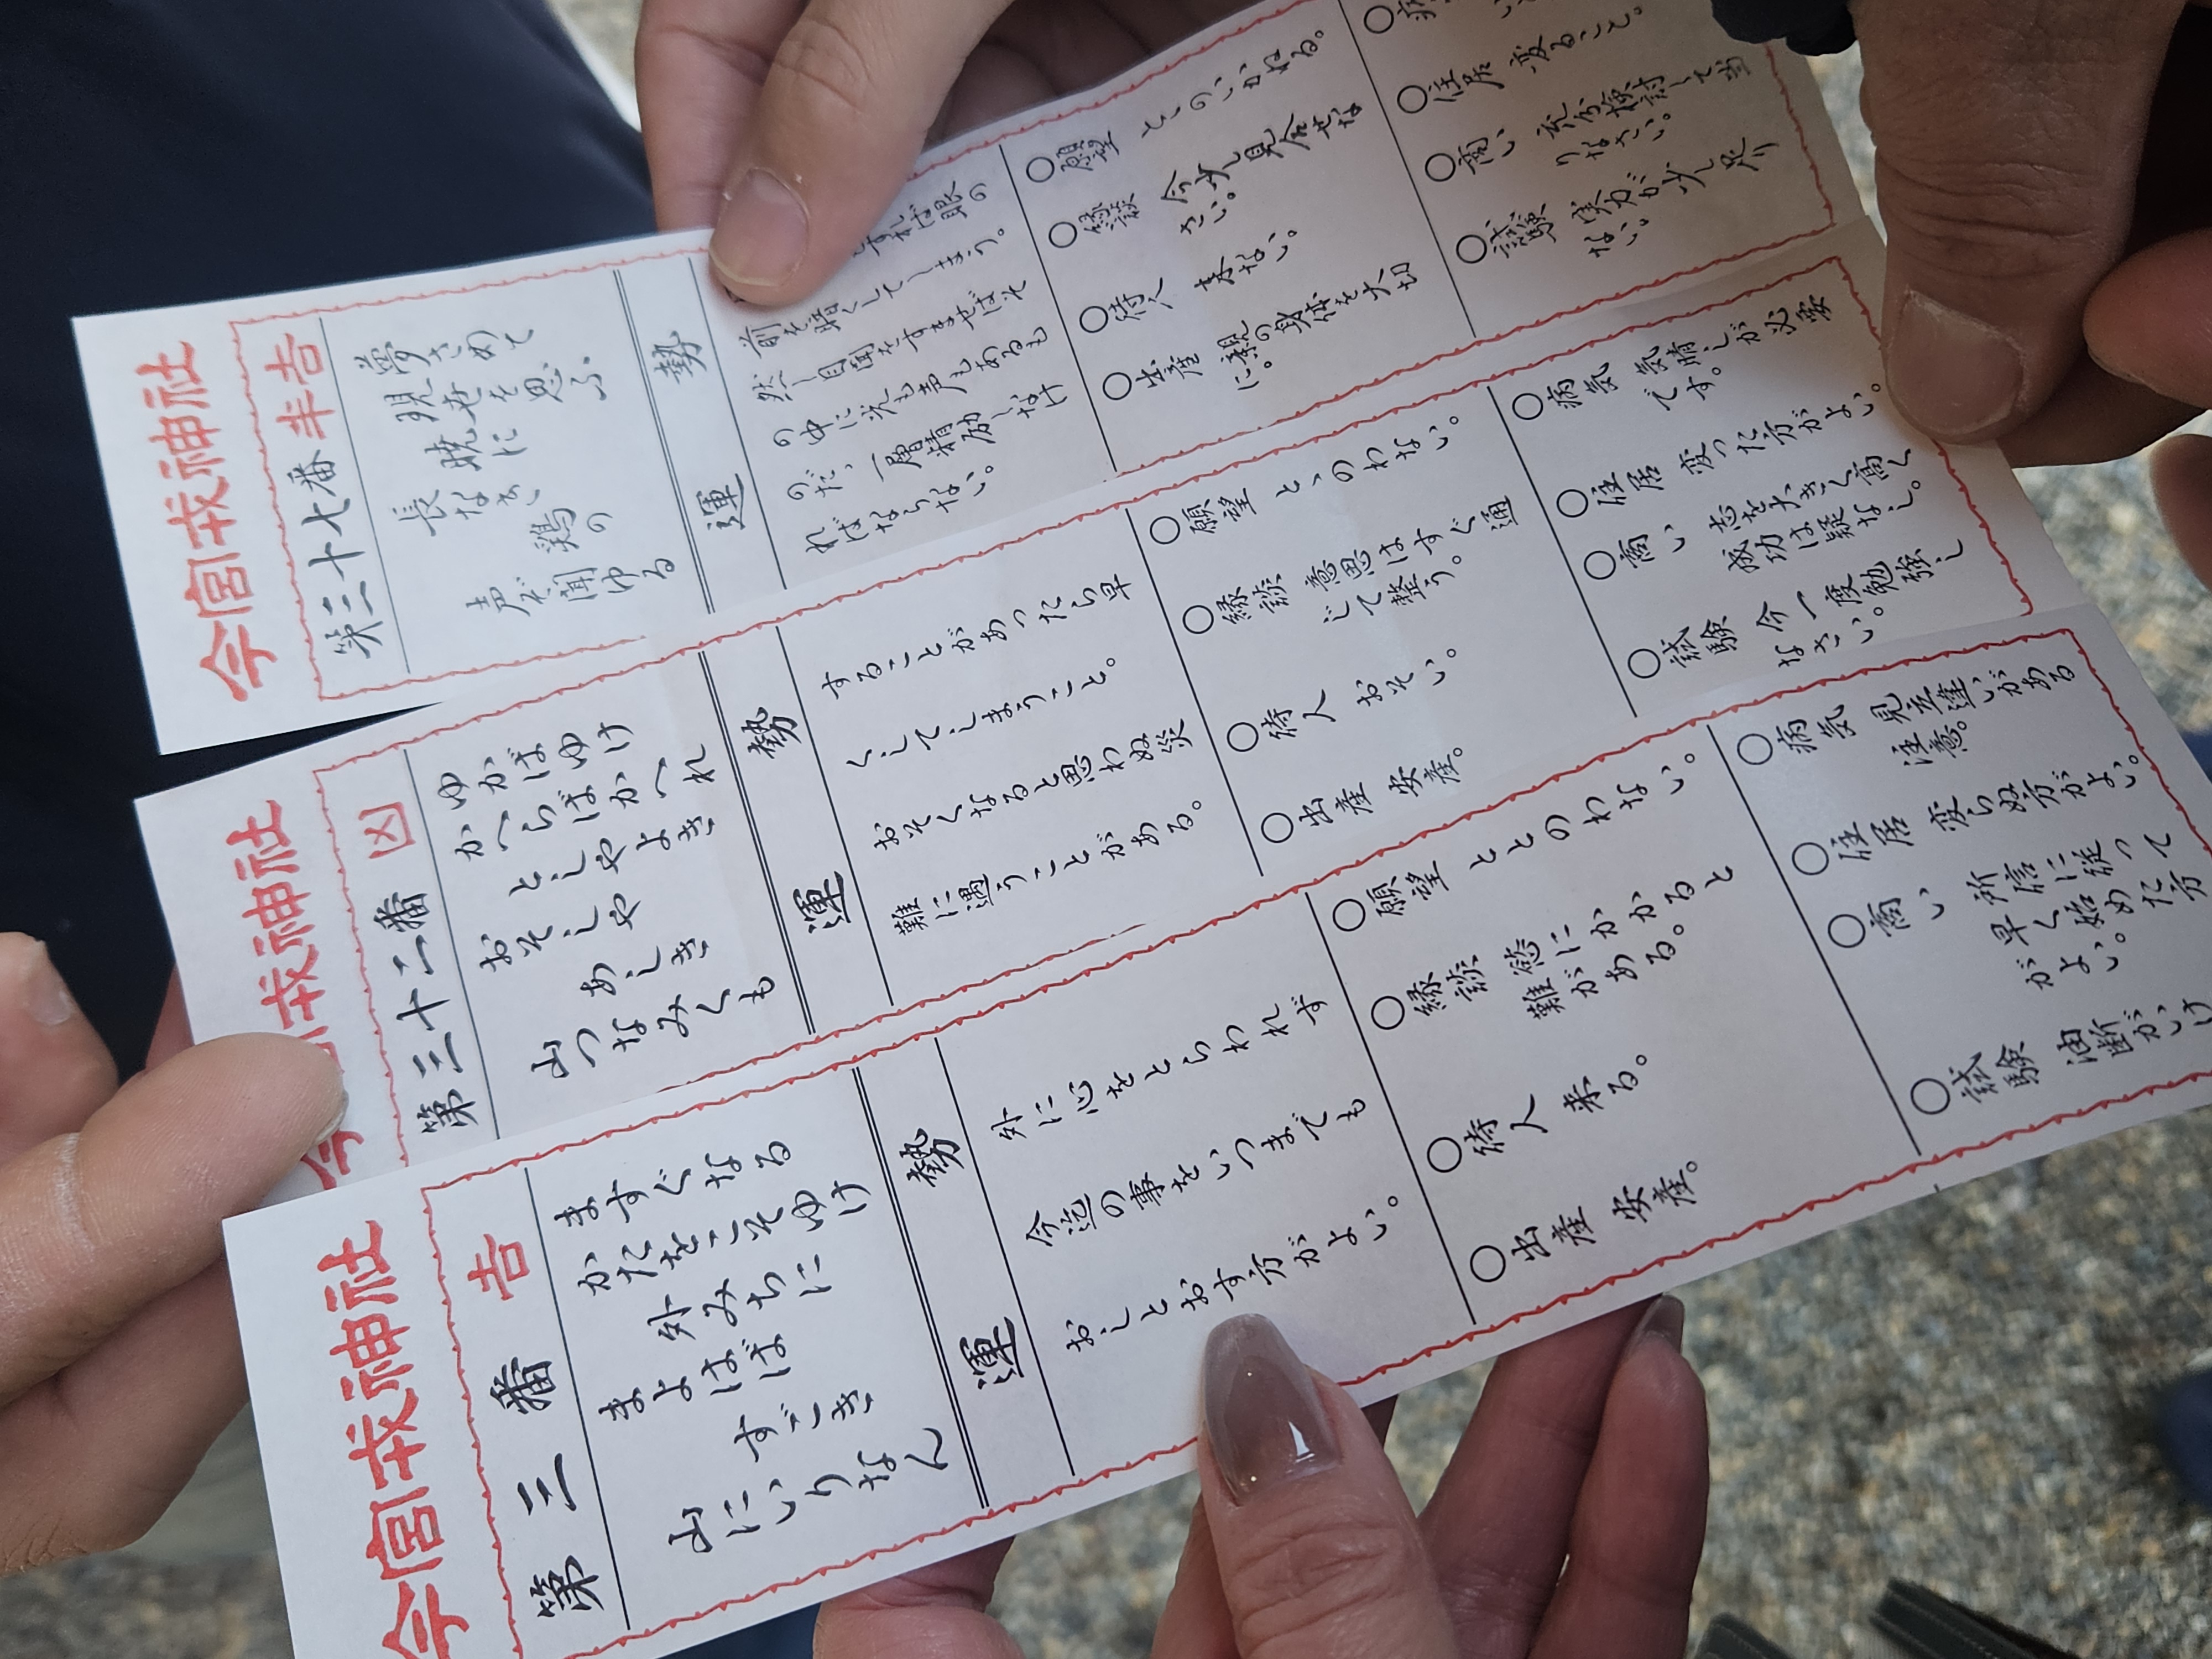 今宮戎神社
第三十七番 半吉
夢さめて
現世を思ふ
暁に
長なき鶏の
声ぞ聞ゆる
運勢
すれば眼の
前を暗くしてしまう。
然し自聞をすませばそ
の中に光も声もあるも
のだ、一層精励しなけ
ればならない。
○願望 とゝのいかねる。
○縁談 今少し見合せな
さい。
○待人 来ない。
○出産 親の身体を大切
に。
○病
○住居 変ること。
○商い 充分検討して当
りなさい。
○試験 実力が少し足り
ない
今宮戎神社
第三十二番 凶
ゆかばゆけ
かへらばかへれ
としやよき
おそしや
あしき
山つなみくも
運勢
することがあったら早
くしてしまうこと。
おそくなると思わぬ災
難に遇うことがある。
○願望 とゝのわない。
○縁談 意思はすぐ通
じて整う。
○待人 おそい。
○出産 安産。
○病気 気晴しが必要
です。
○住居 変った方がよい。
○商い 志を大きく高く
成功は疑なし。
○試験 今一度勉強し
なさい。
今宮戎神社
第三番 吉
ますぐなる
かたをこそゆけ
外みちに
まよはば
すごき
山にいりなん
運勢
外に心をとらわれず
今迄の事をいつまでも
おしとおす方がよい。
○願望 ととのわない。
○縁談 慾にかかると
難がある。
○待人 来る。
○出産 安産。
○病気 見立違いがある
注意。
○住居 変らぬ方がよい。
○商い 所信に従って
早く始めた方
がよい。
○試験 油断がいけ